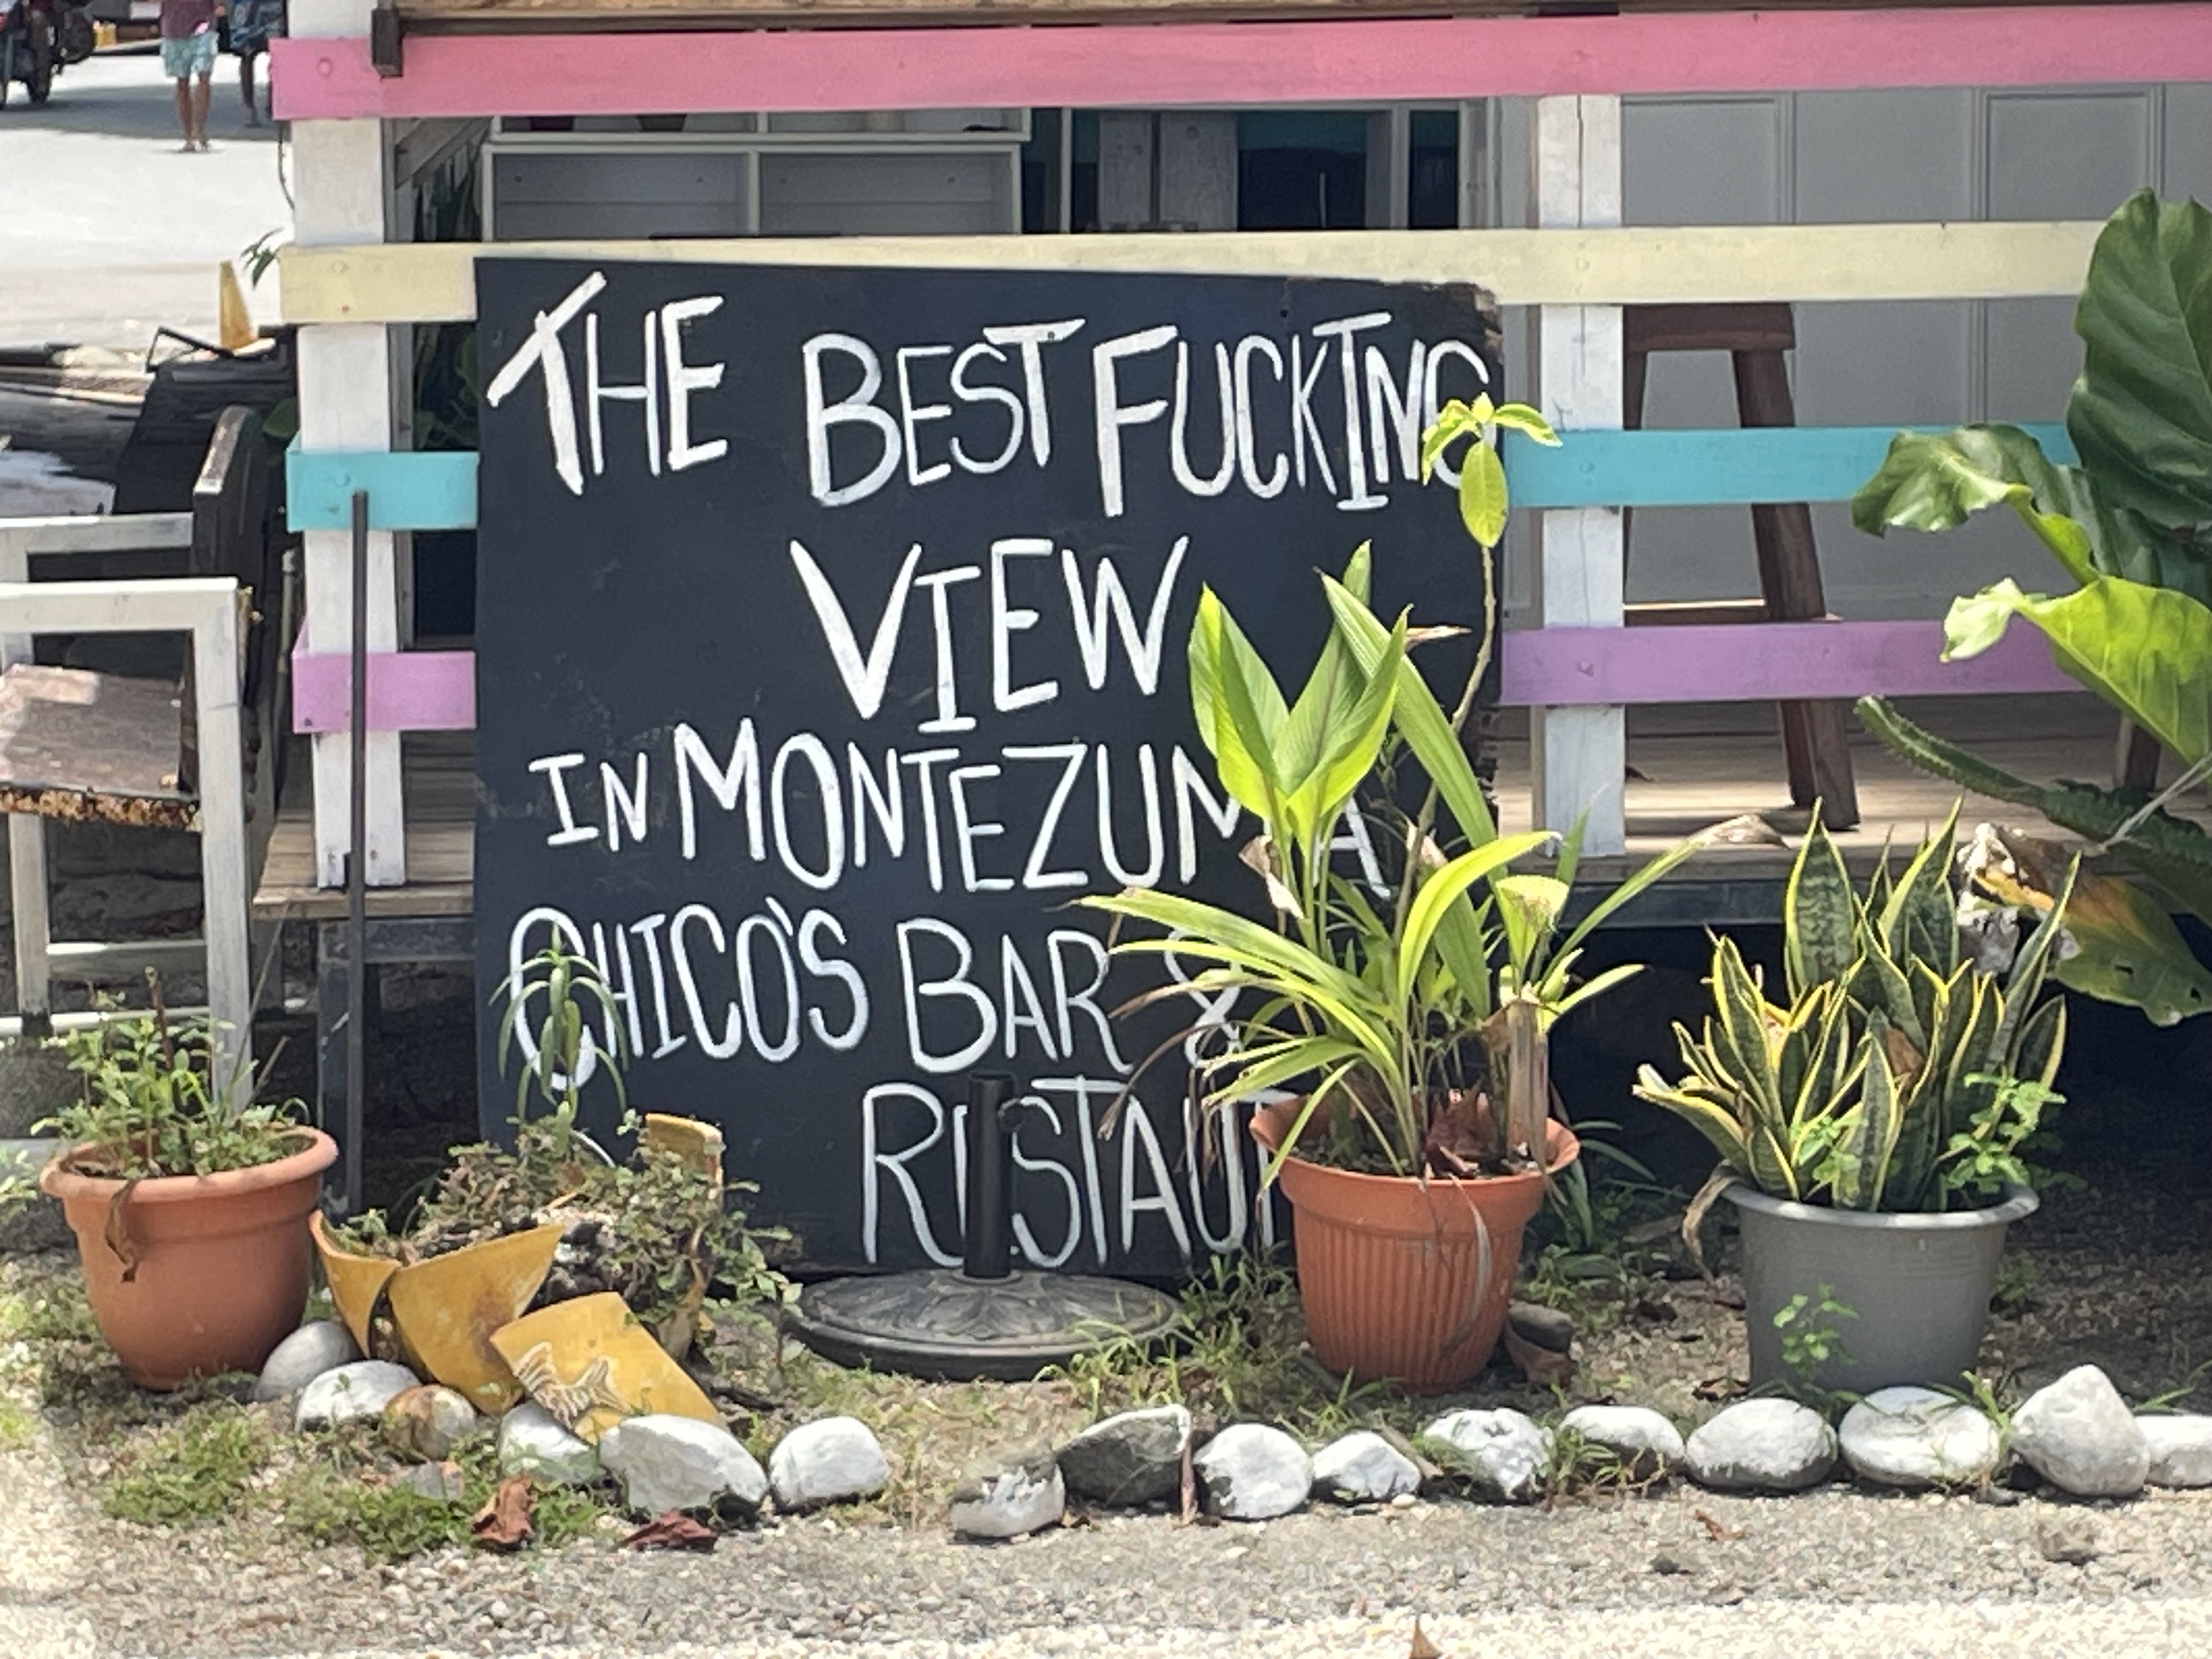 THE BEST FUCKING
VIEW
IN MONTEZUMA
CHICO'S BAR &
RESTAU